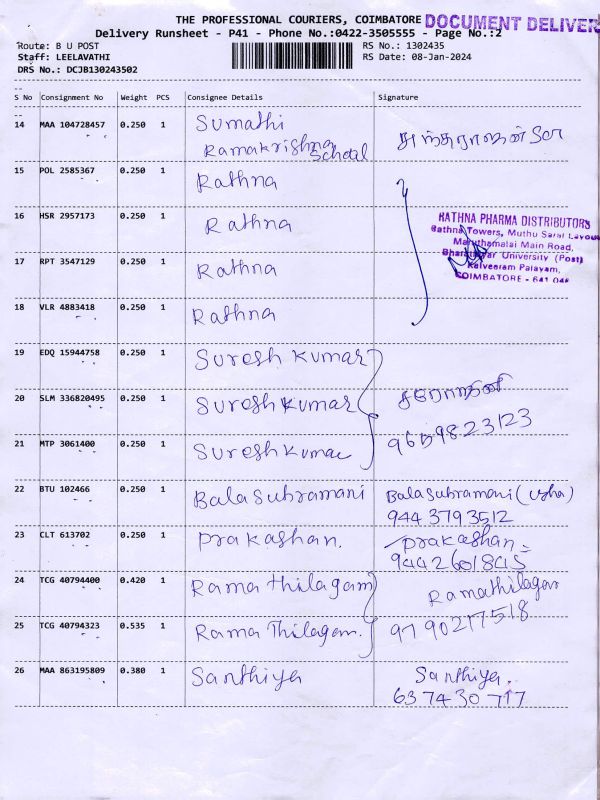 THE PROFESSIONAL COURIERS, COIMBATORE
DOCUMENT DELIVER
Delivery Runsheet - P41 - Phone No.:0422-3505555 - Page No.:2
Route: B U POST
RS No.: 1302435
Staff: LEELAVATHI
RS Date: 08-Jan-2024
DRS No.: DCJB130243502
--
S No Consignment No Weight PCS Consignee Details Signature
--
14 MAA 104728457 0.250 1 Sumathi
Ramakrishna School
15 POL 2585367 0.250 1 Rathna
16 HSR 2957173 0.250 1 Rathna
RATHNA PHARMA DISTRIBUTORS
Rathna Towers, Muthu Layou
Maruthamalai Main Road,
University (Post)
Kalveeram Palayam,
COIMBATORE - 641 046
17 RPT 3547129 0.250 1 Rathna
18 VLR 4883418 0.250 1 Rathna
19 EDQ 15944758 0.250 1 Suresh Kumar
20 SLM 336820495 0.250 1 Suresh Kumar சரோஜினி
21 MTP 3061400 0.250 1 Suresh Kumar 9659823123
22 BTU 102466 0.250 1 Balasubramani Balasubramani (Usha)
9443793512
23 CLT 613702 0.250 1 Prakashan. Prakashan
9442601845
24 TCG 40794400 0.420 1 Rama thilagam Ramathilagam
25 TCG 40794323 0.535 1 Rama Thilagam. 9790217518
26 MAA 863195809 0.380 1 Santhiya Santhiya.
6374430717